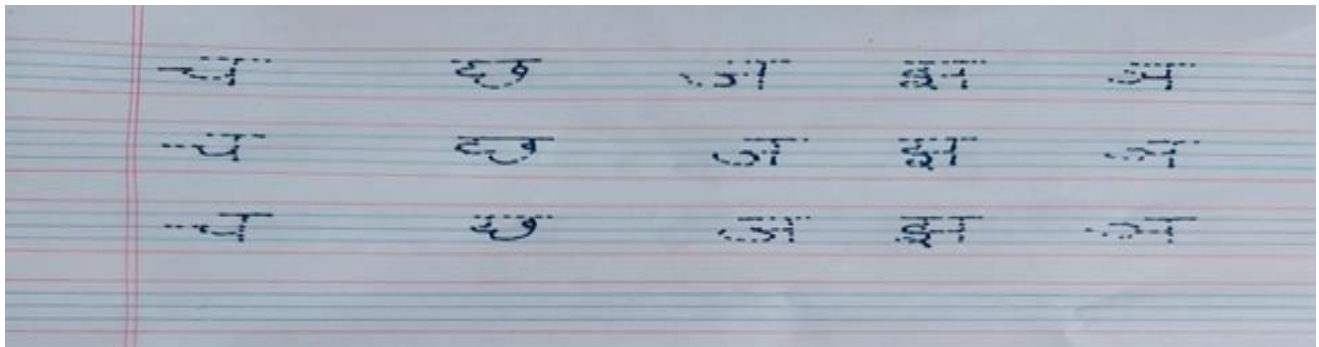 च छ ज झ ञ
च छ ज झ ञ
च छ ज झ ञ